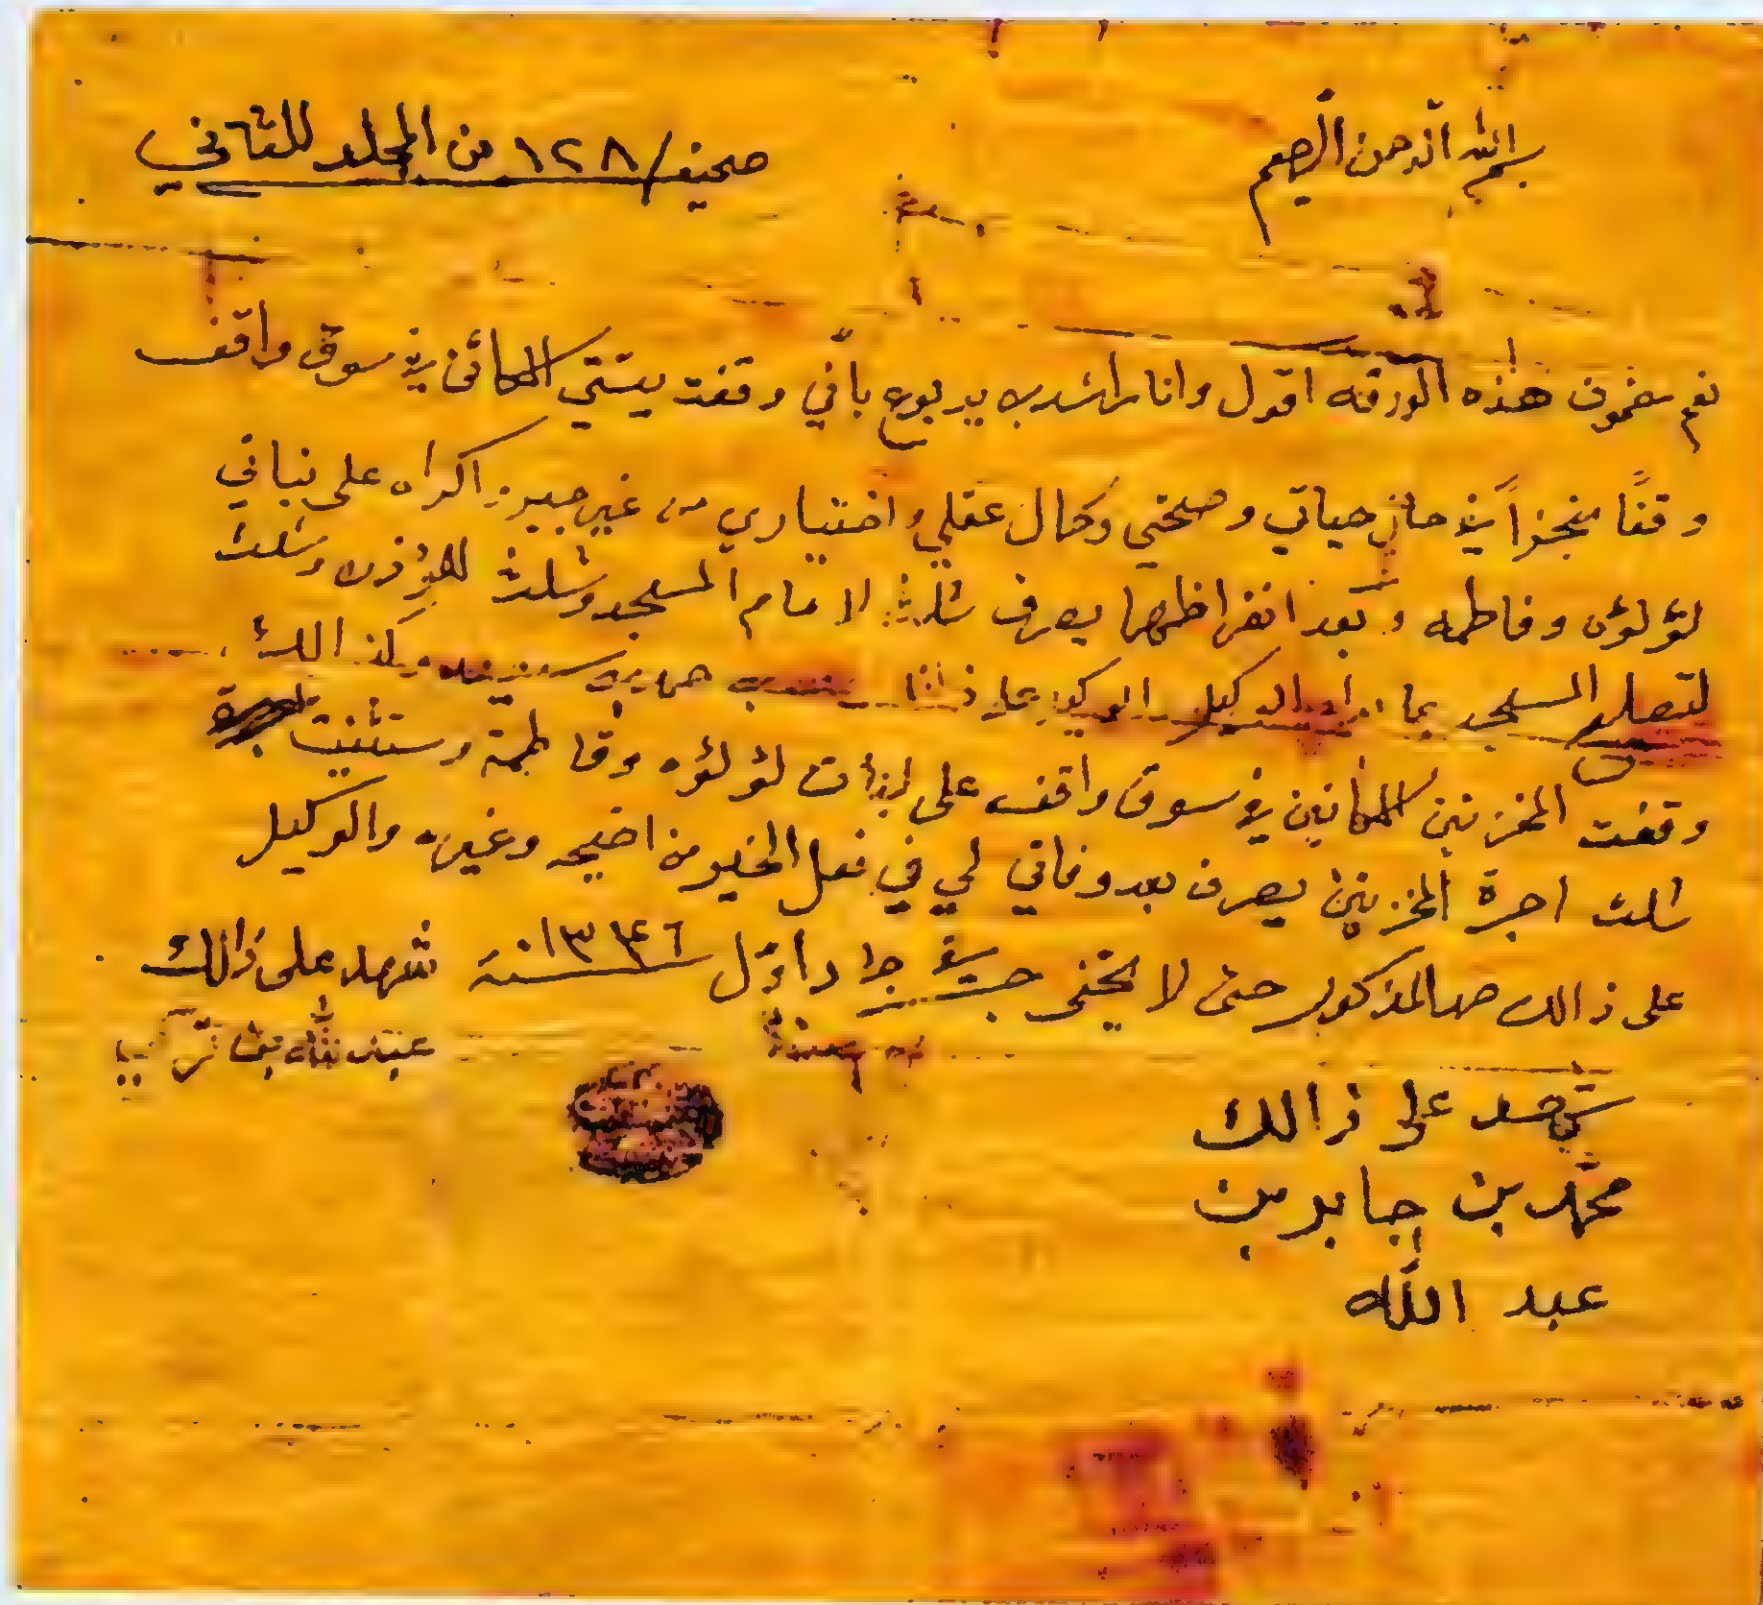 بسم الله الرحمن الرحيم
صحيفه/١٢٨ من المجلد الثاني
نعم مضمون هذه الورقه اقول وانا راشد بن يربوع بأني وقفت بيتي الكائن في سوق واقف
وقفًا منجزاً في حال حياتي وصحتي وكمال عقلي واختياري من غير جبر واكراه على بناتي
لؤلؤه وفاطمه وبعد انقراظهما يصرف ثلث لامام المسجد وثلث للمؤذن وثلث
المسجد بما الوكيل وكذالك
وقفت المخزنين الكائنين في سوق واقف على بنات لؤلؤه وفاطمة وستثنيت
ثلث اجرة المخزنين يصرف بعد وفاتي لي في فعل الخير من اضحيه وغيره والوكيل
على ذالك المذكور حتى لا يخفى جرى في جماد اوّل ١٣٤٦ سنة
شهد على ذالك
عبد الله بن
يشهد على ذالك
محمّد بن جابر بن
عبد اللّه